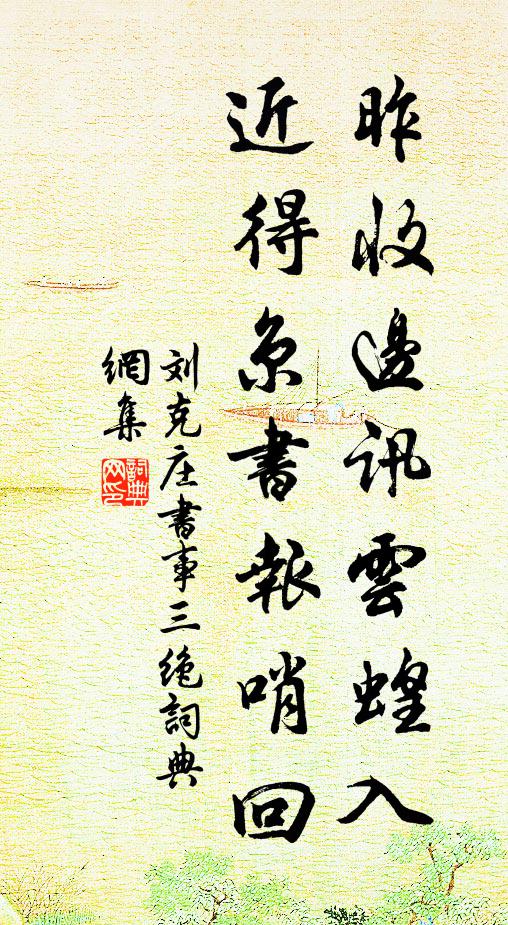 昨收邊訊雲蝗入
近得京書報哨回
刘克庄書事三绝詞典
網集
詞典
网印